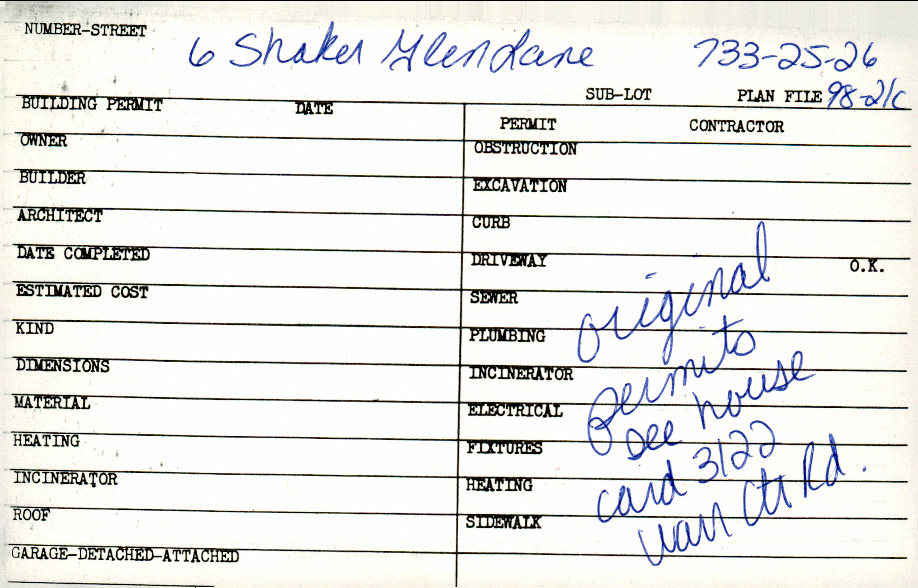 NUMBER-STREET 6 Shaker Glen Lane 733-25-26
SUB-LOT PLAN FILE 98-21C
BUILDING PERMIT DATE
PERMIT CONTRACTOR
OWNER
OBSTRUCTION
BUILDER
EXCAVATION
ARCHITECT
CURB
DATE COMPLETED
DRIVEWAY O.K.
ESTIMATED COST
SEWER
KIND
PLUMBING
DIMENSIONS
INCINERATOR
MATERIAL
ELECTRICAL
HEATING
FIXTURES
INCINERATOR
HEATING
ROOF
SIDEWALK
GARAGE-DETACHED-ATTACHED
original
permits
see house
card 3122
Warr Ctr Rd.